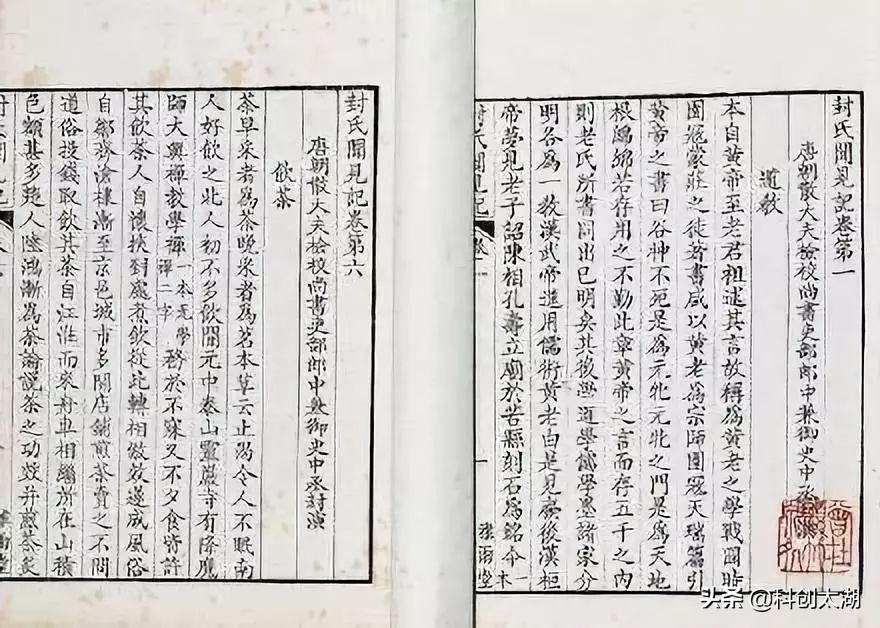 封氏聞見記卷第一
唐朝散大夫檢校尚書吏部郎中兼御史中丞
道教
本自黃帝至老君祖述其言故稱爲黃老之學戰國時
圄寇蒙莊之徒著書咸以黃老爲宗師圄寇天瑞篇引
黃帝之書曰谷神不死是爲元牝元牝之門是爲天地
根綿綿若存用之不勤此章黃帝之言而存五千之內
則老氏所書同出已明矣其後學道學儒學墨諸家分
明各爲一教漢武帝進用儒術黃老由是見廢後漢桓
帝夢見老子詔陳相孔壽立廟於苦縣刻石爲銘今
一本
封氏聞見記
卷一
雅雨堂
封氏聞見記卷第六
唐朝散大夫檢校尚書吏部郎中兼御史中丞封演
飲茶
茶早采者爲茶晚采者爲茗本草云止渴令人不眠南
人好飲之北人初不多飲開元中泰山靈巖寺有降魔
師大興禪教學禪
一本無學
禪二字
務於不寐又不夕食皆許
其飲茶人自懷挾到處煮飲從此轉相倣效遂成風俗
自鄒齊滄棣漸至京邑城市多開店鋪煎茶賣之不問
道俗投錢取飲其茶自江淮而來舟車相繼所在山積
色額甚多楚人陸鴻漸爲茶論說茶之功效并煎茶炙
头条 @科创太湖